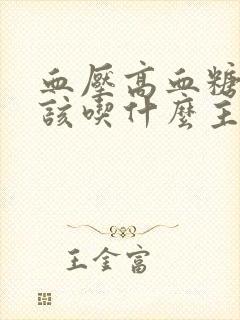 血壓高血糖
該喫什麼主
王金富